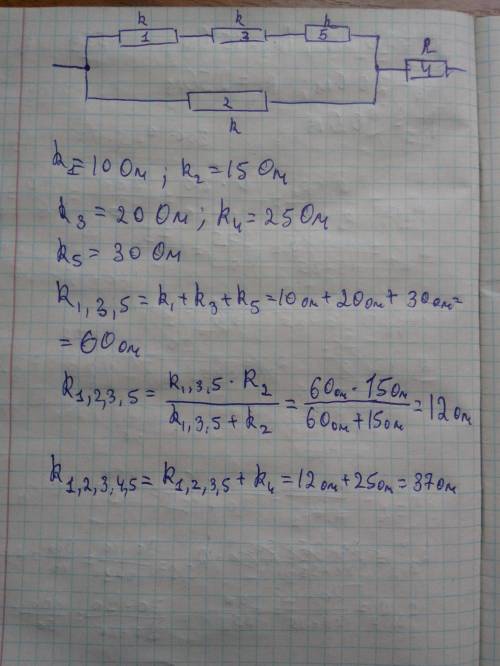 R R R
1 3 5
R
4
2
R
R₁=10 Ом ; R₂=15 Ом
R₃=20 Ом ; R₄=25 Ом
R₅=30 Ом
R₁,₃,₅ = R₁+R₃+R₅ =10 ом+20 ом+ 30 ом=
= 60 ом
R₁,₂,₃,₅ = R₁,₃,₅ · R₂ / R₁,₃,₅ + R₂ = 60 ом · 15 ом / 60 ом + 15 ом = 12 ом
R₁,₂,₃,₄,₅ = R₁,₂,₃,₅ + R₄ = 12 ом+25 ом = 37 ом